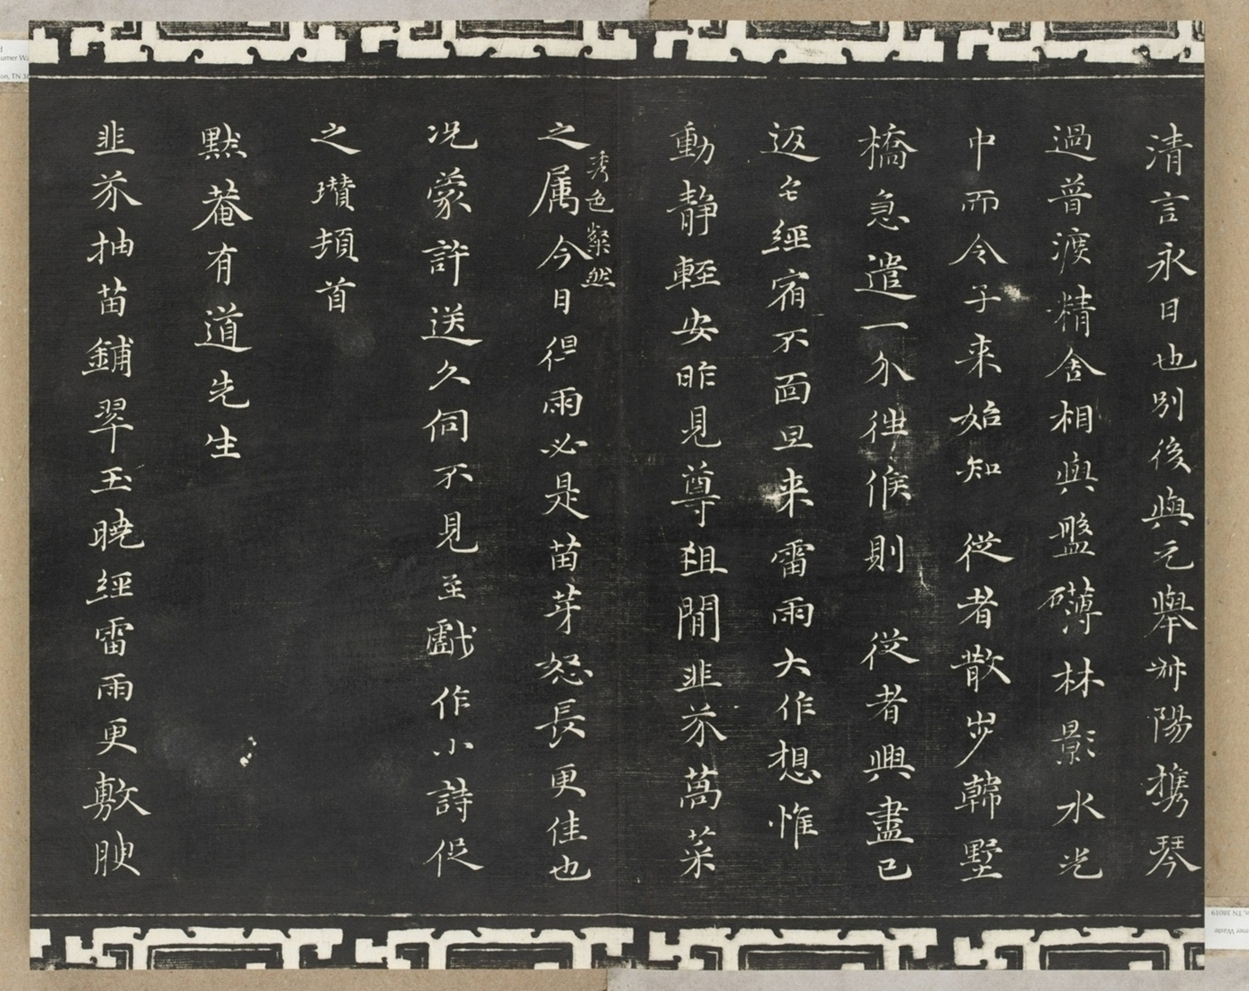 清言永日也別後與元舉叔陽携琴
過普渡精舍相與盤礴林影水光
中而令子来始知 從者散步韓墅
橋急遣一介往候則 從者興盡已
返宅經宿不面旦来雷雨大作想惟
動静輕安昨見尊俎間韭芥萵菜
秀色粲然
之属今日得雨必是苗芽怒長更佳也
况蒙許送久伺不見至戲作小詩促
之瓚頓首
默菴有道先生
韭芥抽苗鋪翠玉曉經雷雨更敷腴